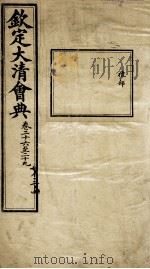 欽定大清會典
卷二十六至二十九
禮部